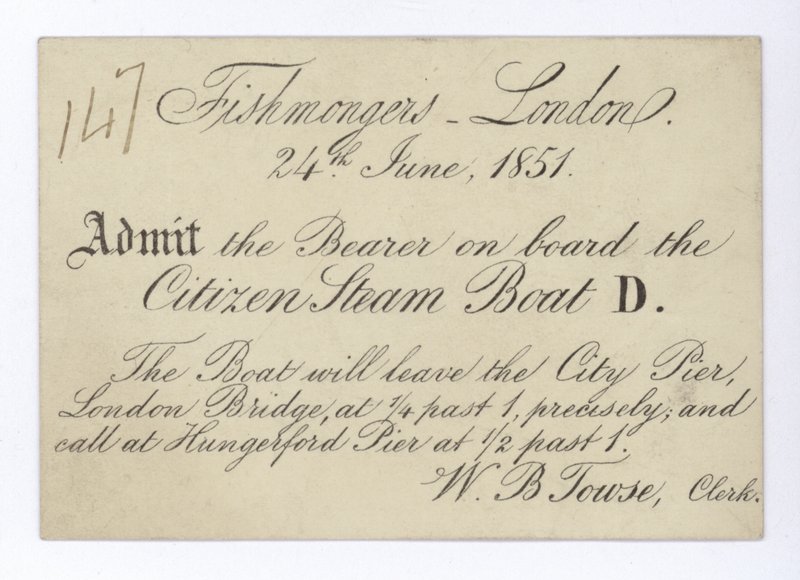 147
Fishmongers - London.
24th. June, 1851.
Admit the Bearer on board the
Citizen Steam Boat D.
The Boat will leave the City Pier,
London Bridge, at 1/4 past 1, precisely; and
call at Hungerford Pier at 1/2 past 1.
W. B Towse, Clerk.